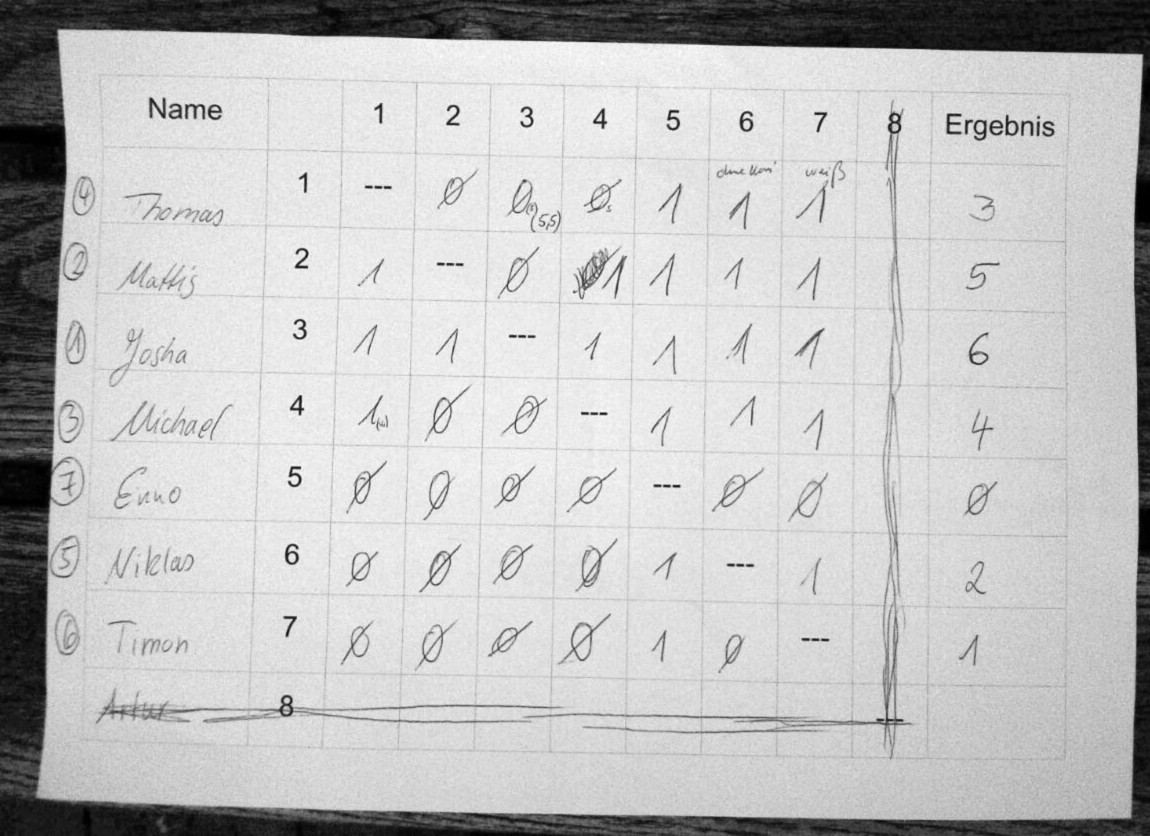 Name 1 2 3 4 5 6 7 8 Ergebnis
weiß
④ Thomas 1 --- Ø Ø (5,5) Ø 1 1 1 3
② Mattis 2 1 --- Ø 1 1 1 1 5
① Josha 3 1 1 --- 1 1 1 1 6
③ Michael 4 1 Ø Ø --- 1 1 1 4
⑦ Enno 5 Ø Ø Ø Ø --- Ø Ø Ø
⑤ Niklas 6 Ø Ø Ø Ø 1 --- 1 2
⑥ Timon 7 Ø Ø Ø Ø 1 Ø --- 1
Artur 8 ---